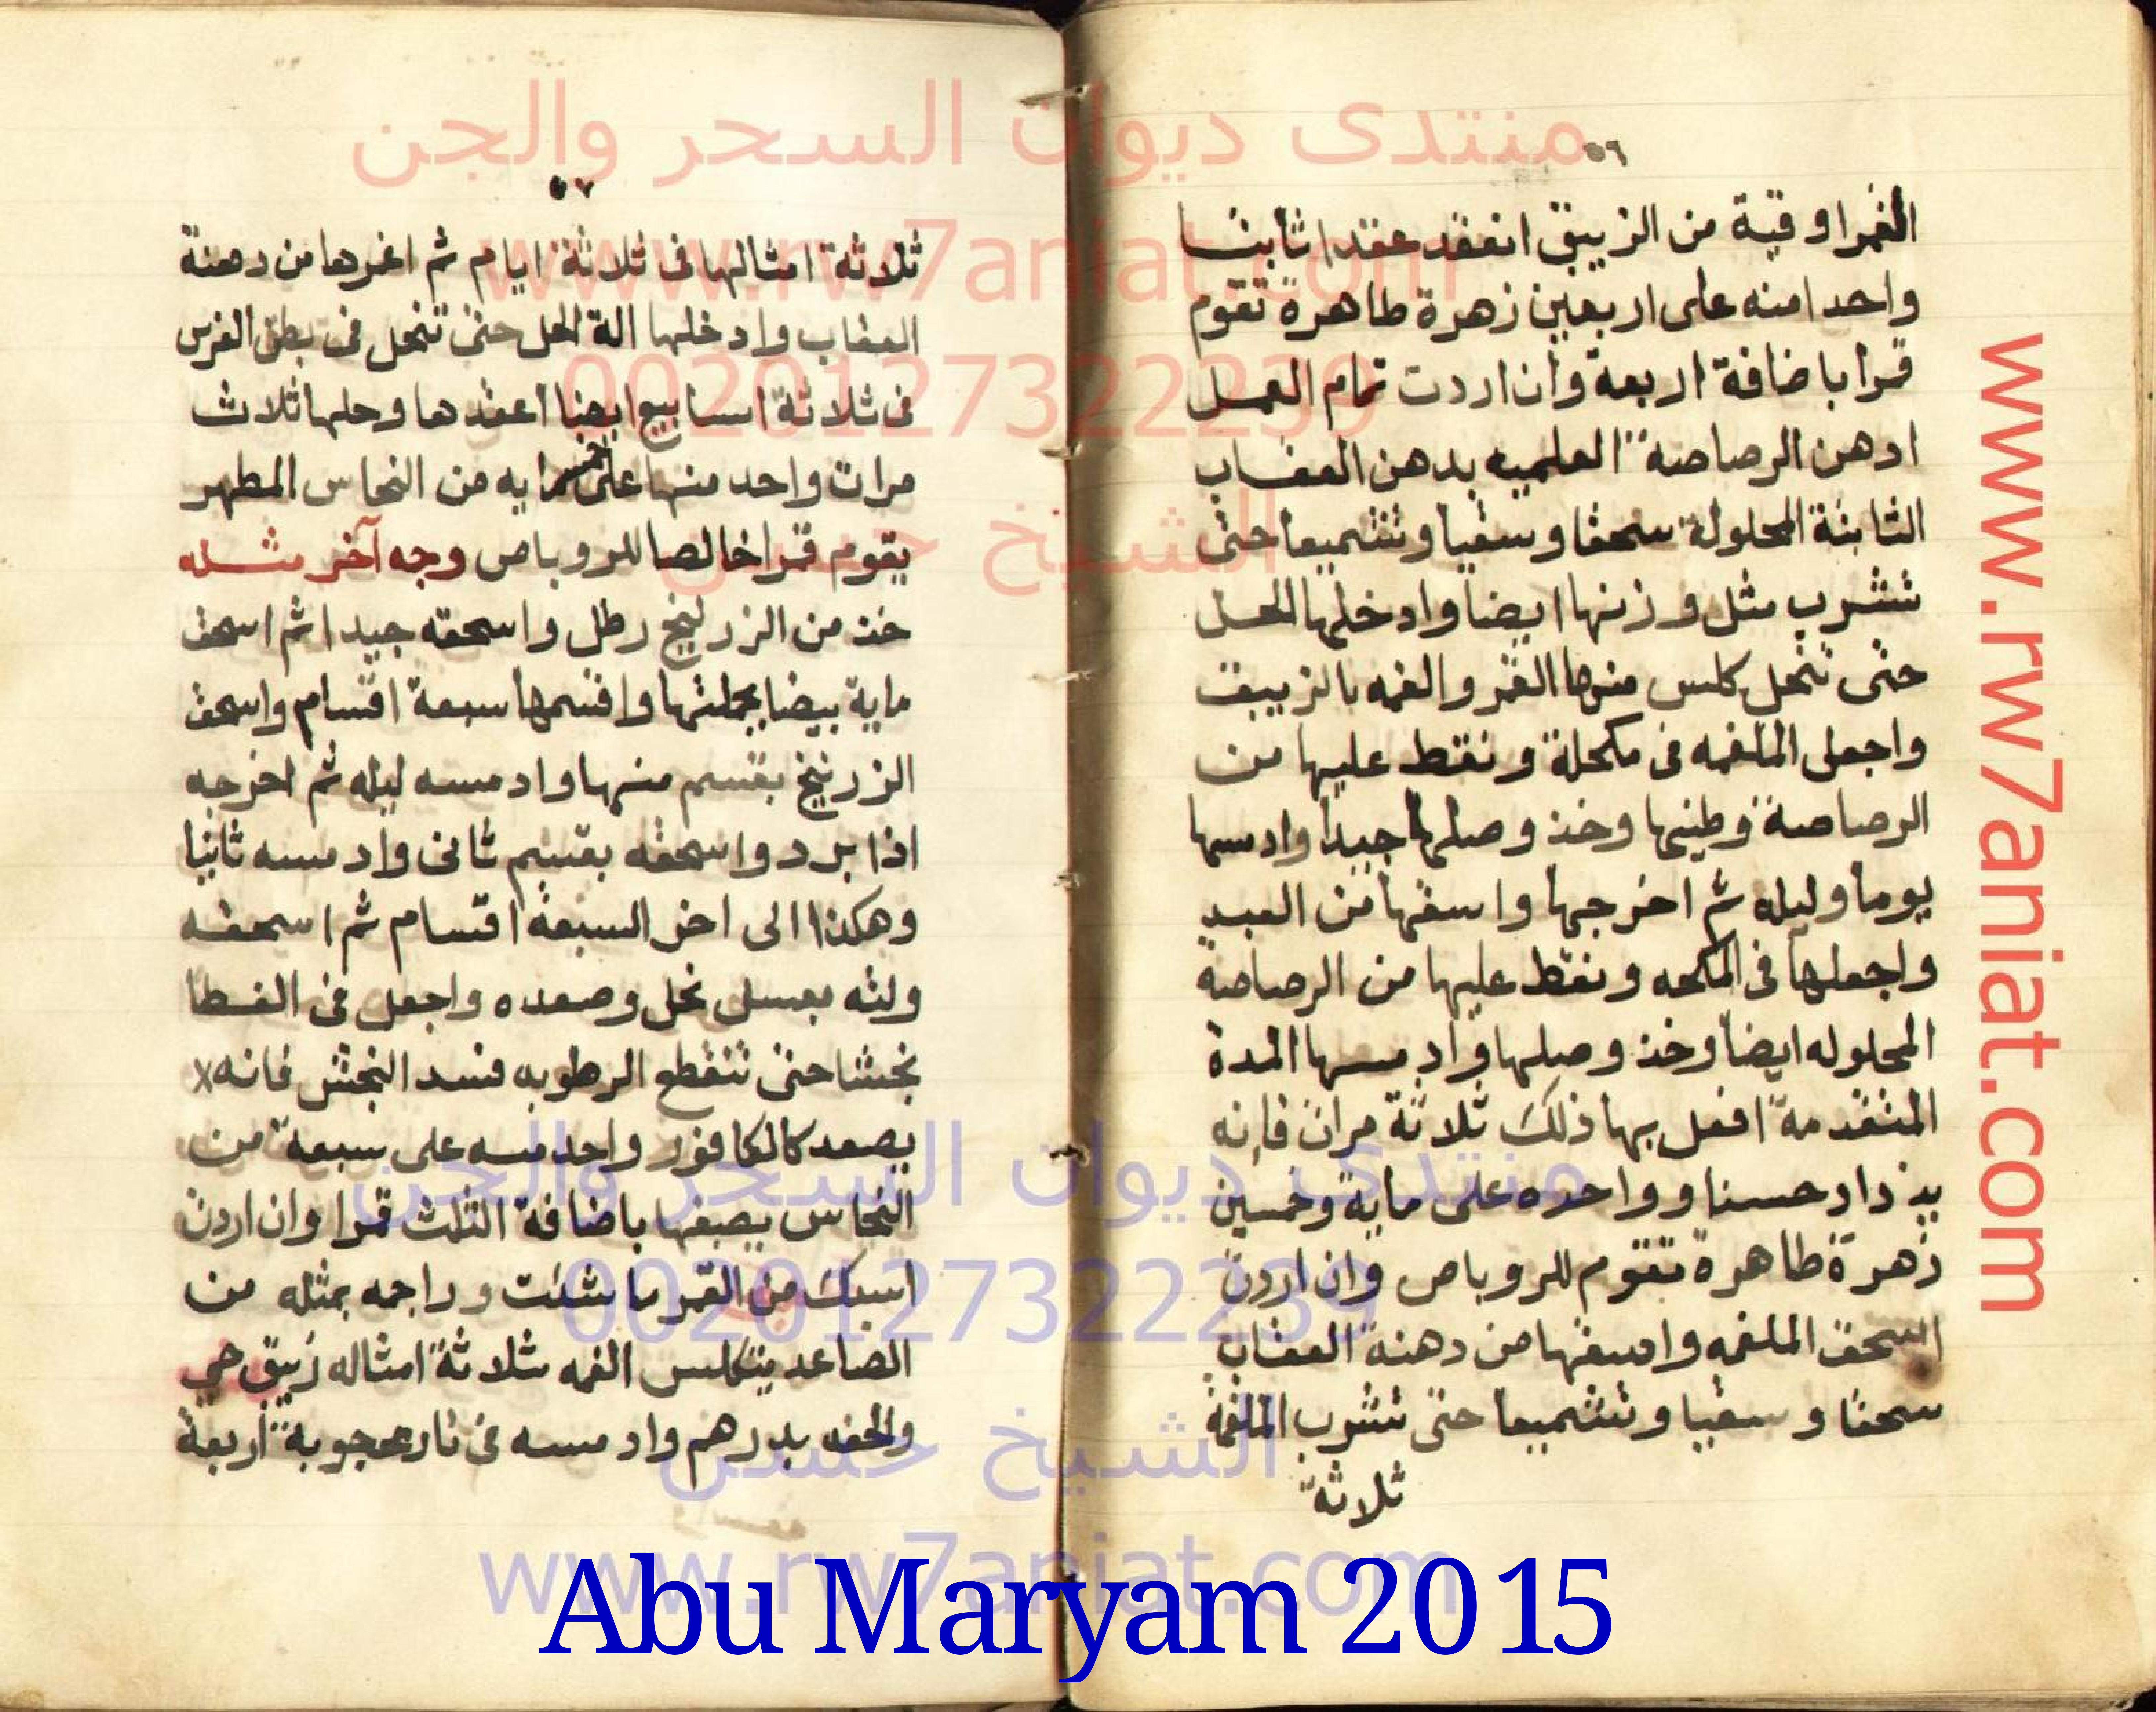 ٥٦
القمر اوقية من الزيبق انعقد عقدا ثابتا
واحد امنه على اربعين زهرة طاهرة تقوم
قمرا باضافة اربعة وان اردت تمام العمل
ادهن الرصاصة العلميه بدهن العقاب
الثابتة المحلولة سحقا وسقيا وتشميعا حتى
تشرب مثل وزنها ايضا وادخلها الحل
حتى تنحل كلس منها القمر والغمه بالزيبق
واجعل الملغمه فى مكحلة ونقط عليها من
الرصاصة وطينها وخذ وصلها جيدا وادمسها
يوما وليله ثم اخرجها واسقها من العبد
واجعلها فى المكحه ونقط عليها من الرصاصة
المحلوله ايضا وخذ وصلها وادمسها المدة
المتقدمة افعل بها ذلك ثلاثة مرات فإنه
يزداد حسنا وواحده على ماية وخمسين
زهرة طاهرة تقوم للروباص وان اردت
اسحق الملغمه واسقها من دهنة العقاب
سحقا وسقيا وتشميعا حتى تشرب الملغمة
ثلاثة
٥٧
ثلاثة امثالها فى ثلاثة ايام ثم اغمرها من دهنة
العقاب وادخلها الة الحل حتى تنحل فى بطن الفرس
فى ثلاثة اسابيع ايضا اعقدها وحلها ثلاث
مرات واحد منها على خمسمايه من النحاس المطهر
يقوم قمرا خالصا للروباص وجه آخر مثله
خذ من الزرنيخ رطل واسحقه جيدا ثم اسحق
ماية بيضا بجملتها واقسمها سبعة اقسام واسحق
الزرنيخ بقسم منها وادمسه ليله ثم اخرجه
اذا برد واسحقه بقسم ثانى وادمسه ثانيا
وهكذا الى اخر السبعة اقسام ثم اسحقه
ولته بعسل نحل وصعده واجعل فى الغطا
بخشا حتى تنقطع الرطوبه فسد البخش فانه x
يصعد كالكافور واحد منه على سبعة من
النحاس يصبغها باضافة الثلث قمرا وان اردت
اسبك من القمر ما شئت وراجمه بمثله من
الصاعد يتكلس الغمه بثلاثة امثاله زيبق حي
والحقه بدرهم وادمسه فى نار محجوبة اربعة
منتدى ديوان السحر والجن
www.rw7aniat.com
00201273222​39
الشيخ حسن
منتدى ديوان السحر والجن
00201273222​39
الشيخ حسن
www.rw7aniat.com
www.rw7aniat.com
Abu Maryam 2015